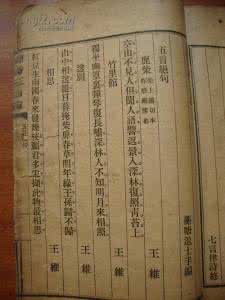 五言絕句
蘅塘退士手編
鹿柴
王維
空山不見人但聞人語響返景入深林復照青苔上
竹里館
王維
獨坐幽篁裏彈琴復長嘯深林人不知明月來相照
送別
王維
山中相送罷日暮掩柴扉春草明年綠王孫歸不歸
相思
王維
紅豆生南國春來發幾枝願君多采擷此物最相思